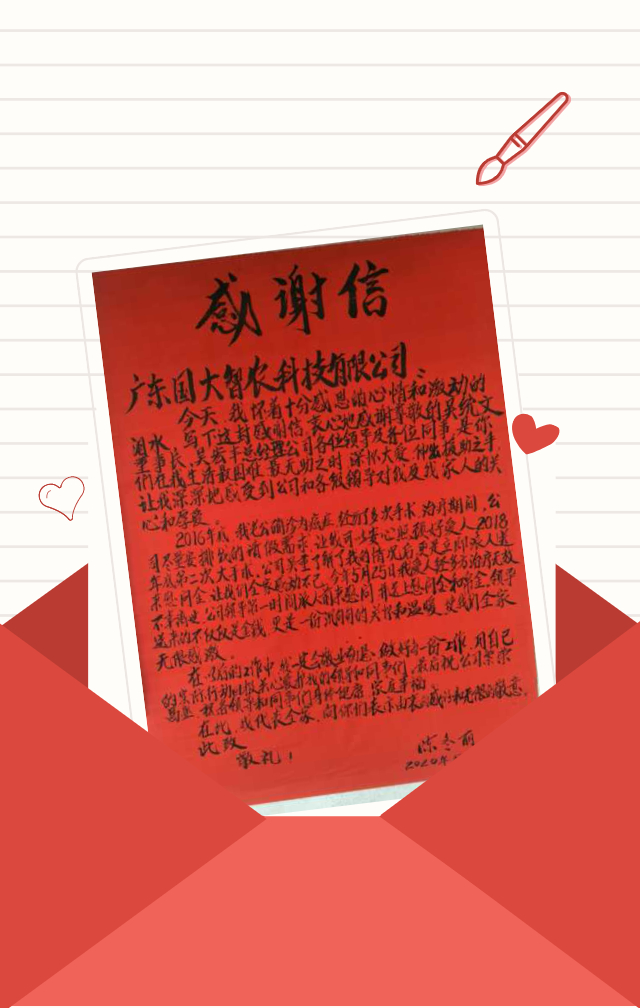 感谢信
广东国大智农科技有限公司：
今天，我怀着十分感恩的心情和激动的
泪水，写下这封感谢信，衷心地感谢尊敬的吴统文
董事长、吴 总经理公司各位领导及各位同事，是你
们在我生活最困难最无助之时，深怀大爱，伸出援助之手
让我深深地感受到公司和各级领导对我及我家人的关
心和厚爱。
2016年底，我老公确诊为癌症，经历了多次手术，治疗期间，公
司尽量安排我的请假需求，让我可以安心照顾好爱人，2018
年底第二次大手术，公司吴董了解了我的情况后更是立即派人送
来慰问金，让我们全家感动不已，今年5月25日我爱人经多方治疗无效
不幸病逝，公司领导第一时间派人前来慰问，并送上慰问金和帛金，领导
送来的不仅仅是金钱，更是一份深深的关怀和温暖，使我们全家
无限感激。
在以后的工作中我一定会敬业勤恳，做好每一份工作，用自己
的实际行动回报关心爱护我的领导和同事们，最后祝公司宏宗
昌盛，祝各领导和同事们身体健康，家庭幸福
在此，我代表全家，向你们表示由衷的感谢和无限的敬意。
此致
敬礼！
陈冬丽
2020年